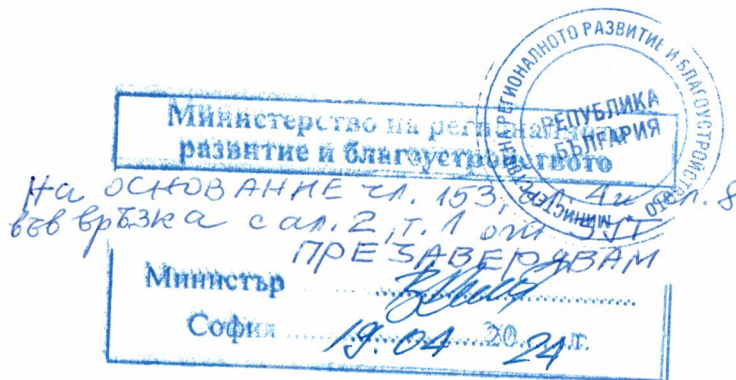 МИНИСТЕРСТВО НА РЕГИОНАЛНОТО РАЗВИТИЕ И БЛАГОУСТРОЙСТВО
РЕПУБЛИКА
БЪЛГАРИЯ
Министерство на регионалното
развитие и благоустройството
На ОСНОВАНИЕ чл. 153, ал. 4 и ал. 8
във връзка с ал. 2, т. 1 от ЗУТ
ПРЕЗАВЕРЯВАМ
Министър
София 19.04 2024 г.